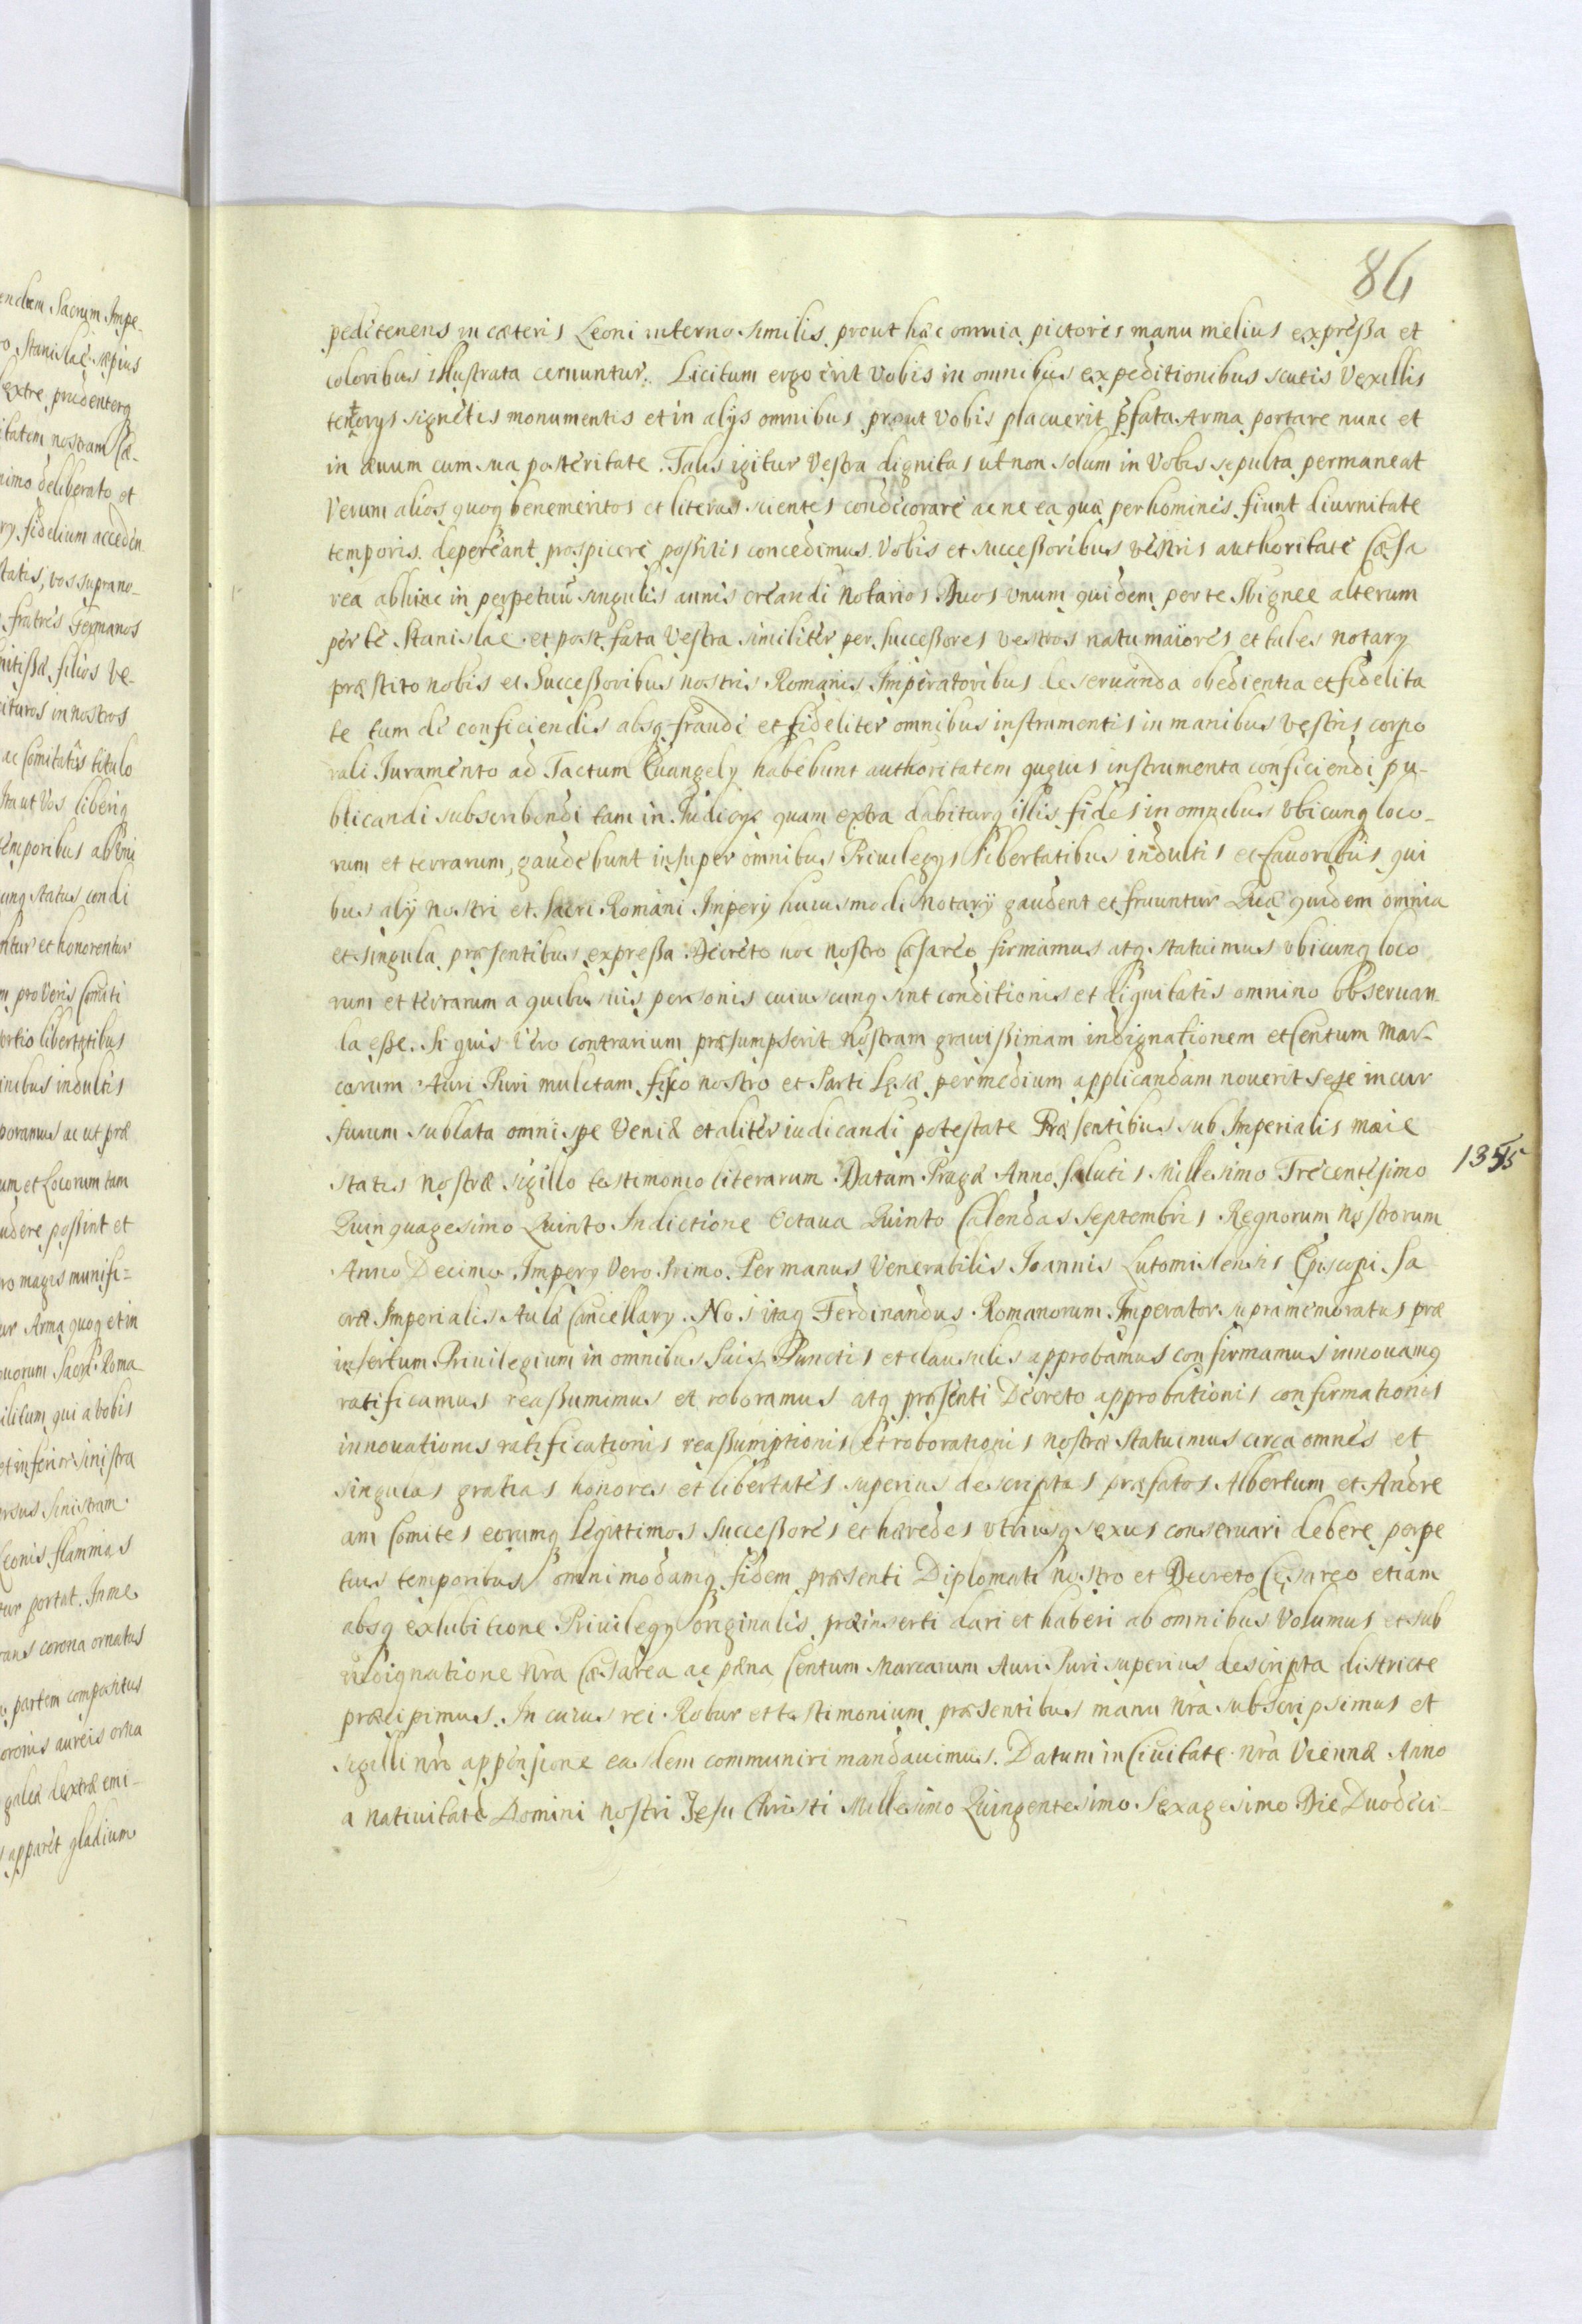 86
peditenens in cæteris Leoni interno similis prout hæc omnia pictoris manu melius expreßa et
coloribus illustrata cernuntur. Licitum ergo erit Vobis in omnibus expeditionibus scutis Vexillis
tentorys signetis monumentis et in alys omnibus prout Vobis placuerit pfata Arma portare nunc et
in ævum cum sua posteritate. Talis igitur Vestra dignitas ut non solum in Vobis sepulta permaneat
Verum alios quoq benemeritos et literas scientes condecorare ac ne ea quæ per homines fiunt diurnitate
temporis depereant prospicere possitis concedimus Vobis et successoribus vestris authoritate Cæsa
rea abhinc in perpetuũ singulis annis creandi Notarios Duos Vnum quidem per te Sbignee alterum
per te Stanislae et post fata Vestra similiter per Succeßores vestros natu maiores et tales notary
præstito nobis et Succeßoribus nostris Romanis Imperatoribus de seruanda obedientia et fidelita
te tum de conficiendis absq fraude et fideliter omnibus instrumentis in manibus vestris corpo
rali Juramento ad Tactum Euangely habebunt authoritatem quævis instrumenta conficiendi pu-
blicandi subscribendi tam in Judicys quam extra dabiturq illis fides in omnibus Vbicunq loco-
rum et terrarum, gaudebunt insuper omnibus Priuilegys Libertatibus indultis et fauoribus qui
bus aly nostri et Sacri Romani Impery huiusmodi Notary gaudent et fruuntur Quæ quidem omnia
et singula præsentibus expreßa Decreto hoc nostro Cæsareo firmamus atq statuimus vbicunq loco
rum et terrarum a quibusuis personis cuiuscunq sint conditionis et dignitatis omnino obseruan-
da eße. Si quis Vero contrarium præsumpserit Nostram grauißimam indignationem et Centum Mar-
carum Auri Puri mulctam fisco nostro et Parti Lęsæ per medium applicandam nouerit seße incur
surum sublata omni spe Veniæ et aliter iudicandi potestate Præsentibus sub Imperialis maie
statis Nostræ sigillo testimonio literarum Datam Pragæ Anno Salutis Millesimo Trecentesimo
1355
Quinquagesimo Quinto Indictione Octaua Quinto Calendas Septembris Regnorum Nostrorum
Anno Decimo Impery Vero Primo. Per manus Venerabilis Joannis Lutomislensis Episcopi Sa
cræ Imperialis Aulæ Cancellary. Nos itaq Ferdinandus Romanorum Imperator supramemoratus præ
insertum Priuilegium in omnibus Suis Punctis et clausulis approbamus confirmamus innouamq
ratificamus reaßumimus et roboramus atq præsenti Decreto approbationis confirmationis
innouationis ratificationis reaßumptionis et roborationis nostræ statuimus circa omnes et
singulas gratias honores et libertates superius descriptas præfatos Albertum et Andre
am Comites eorumq legittimos Succeßores et hæredes vtriusq sexus conseruari debere perpe
tuis temporibus omnimodamq fidem præsenti Diplomati nostro et Decreto Cęsareo etiam
absq exhibitione Priuilegy originalis præinserti dari et haberi ab omnibus Volumus et sub
indignatione nrã Cæsarea ac pæna Centum Marcarum Auri Puri superius descripta districte
præcipimus. In cuius rei Robur et testimonium præsentibus manu nrã subscripsimus et
sigilli nrĩ appensione easdem communiri mandauimus. Datum in Ciuitate nrã Viennæ Anno
a Natiuitate Domini nostri Jesu Christi Millesimo Quingentesimo Sexagesimo Die Duodeci-